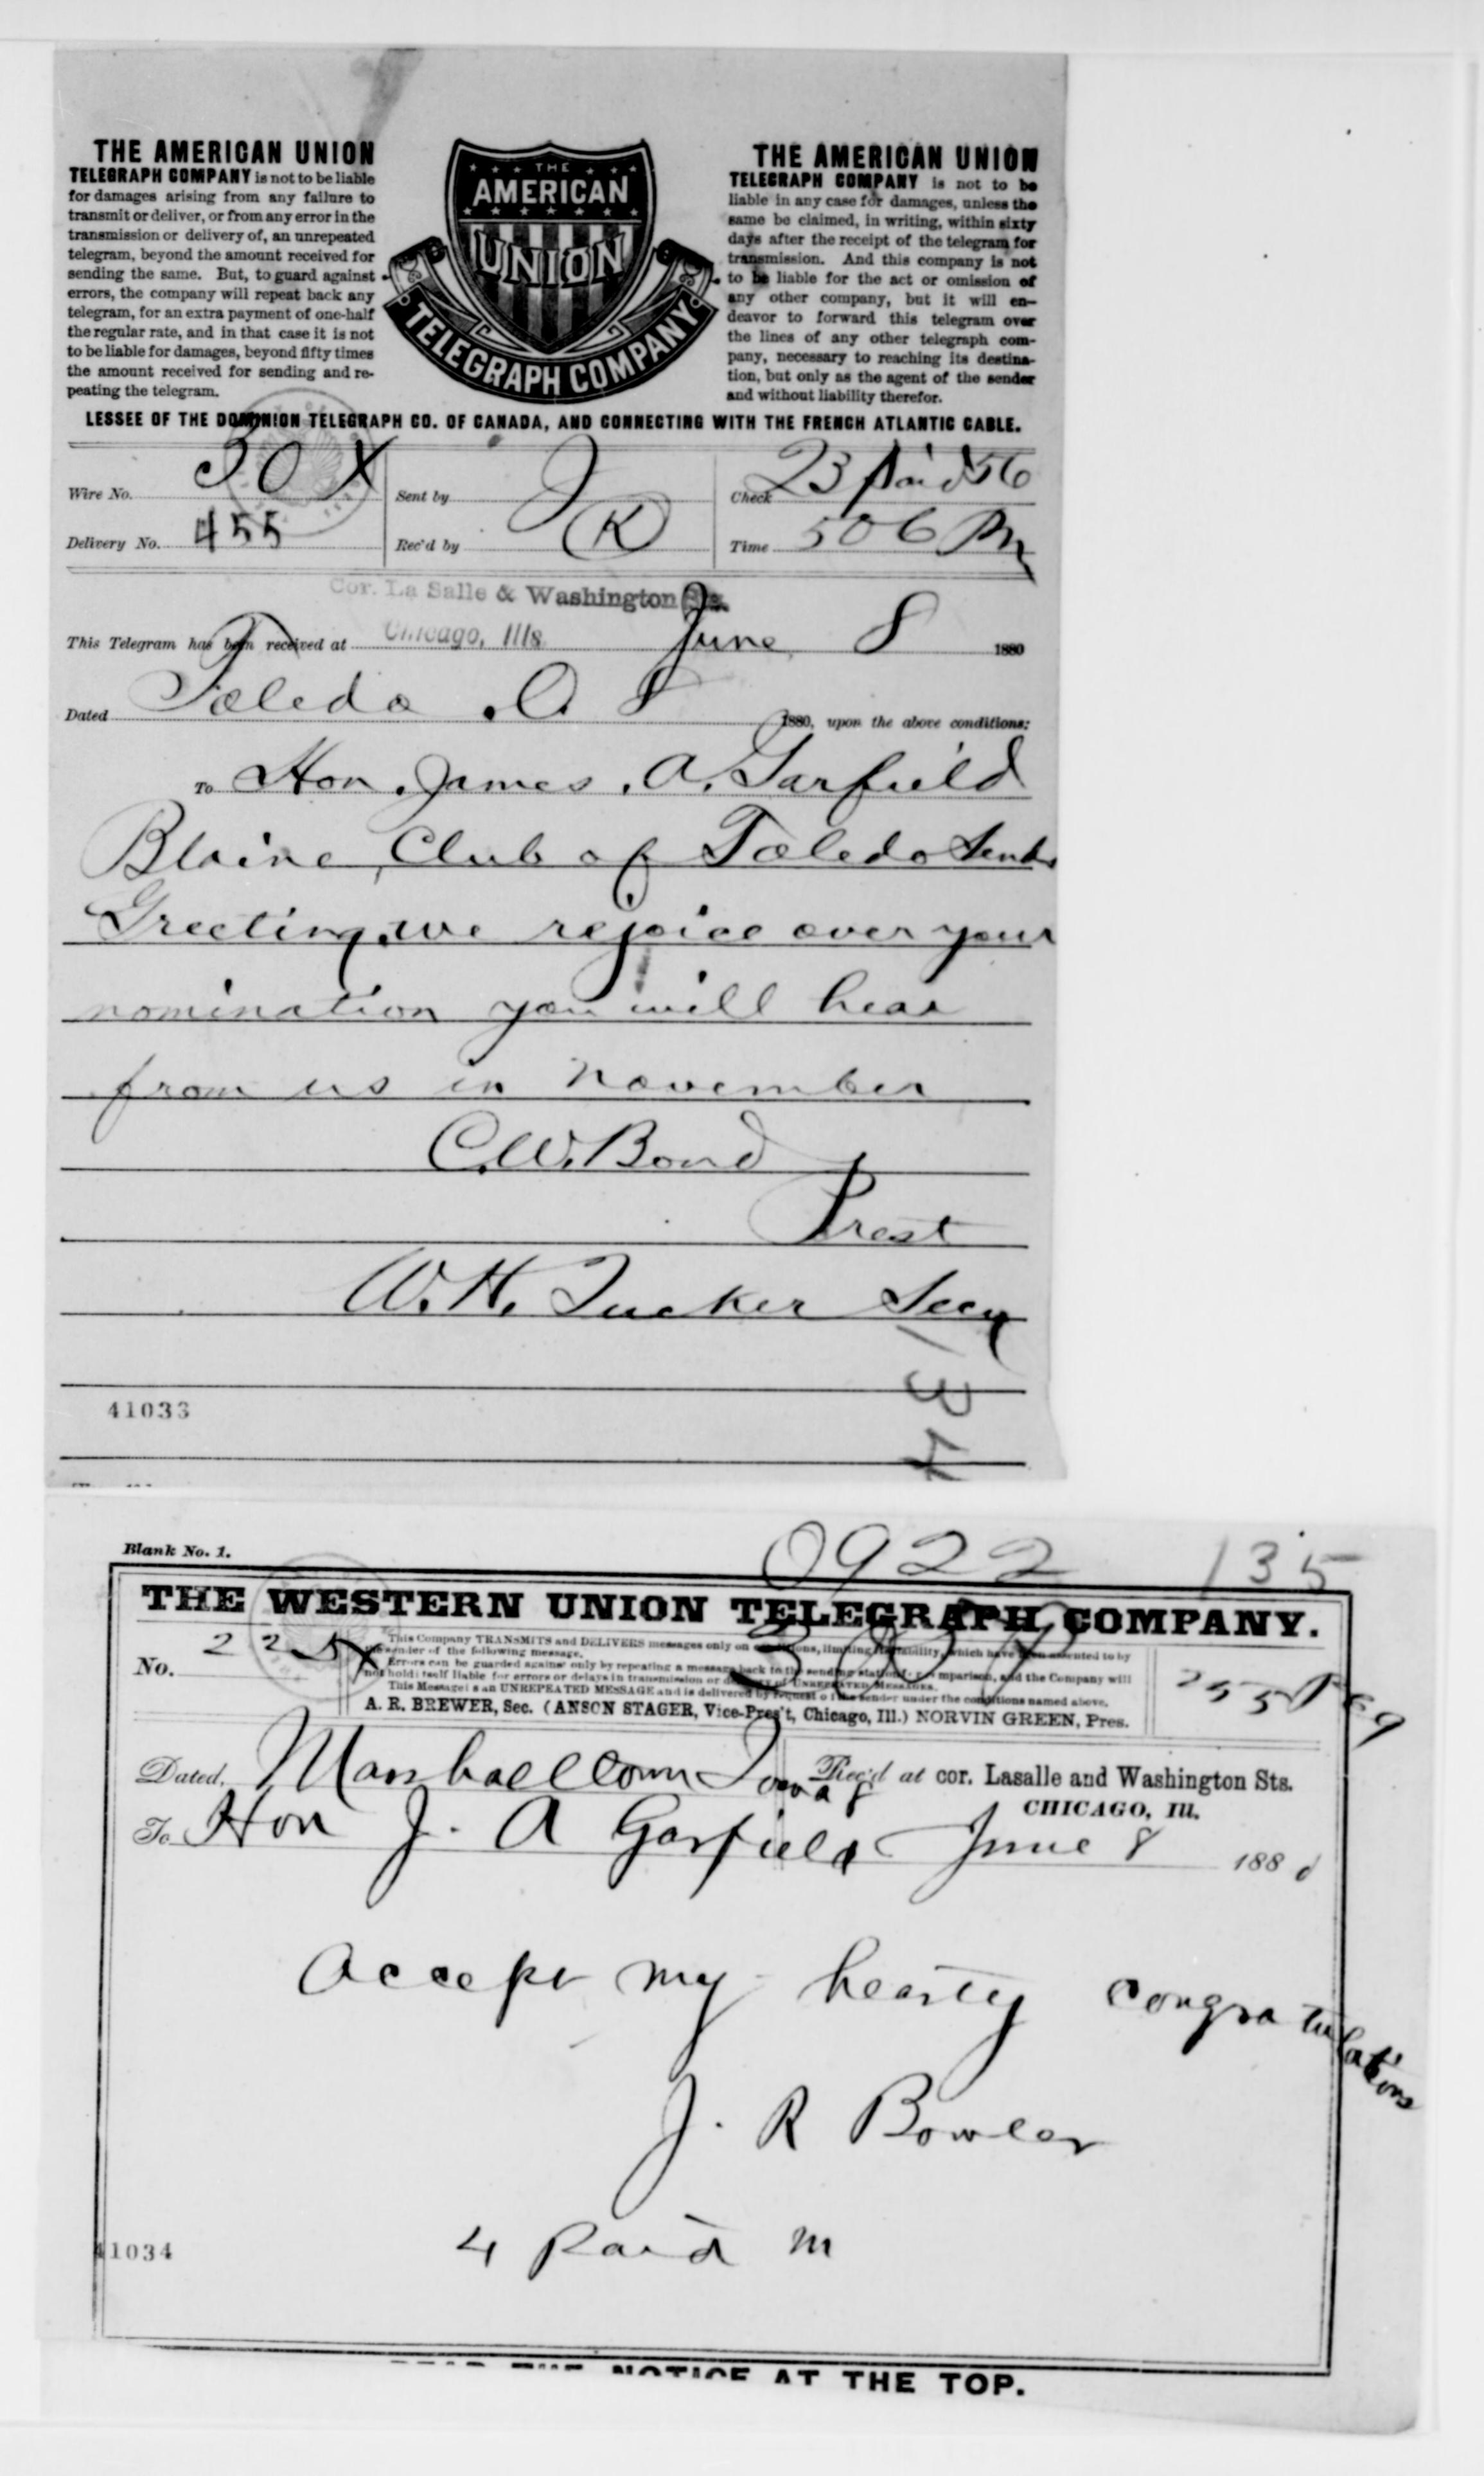 THE AMERICAN UNION
TELEGRAPH COMPANY is not to be liable
for damages arising from any failure to
transmit or deliver, or from any error in the
transmission or delivery of, an unrepeated
telegram, beyond the amount received for
sending the same. But, to guard against
errors, the company will repeat back any
telegram, for an extra payment of one-half
the regular rate, and in that case it is not
to be liable for damages, beyond fifty times
the amount received for sending and re-
peating the telegram.
THE
AMERICAN
UNION
TELEGRAPH COMPANY
THE AMERICAN UNION
TELEGRAPH COMPANY is not to be
liable in any case for damages, unless the
same be claimed, in writing, within sixty
days after the receipt of the telegram for
transmission. And this company is not
to be liable for the act or omission of
any other company, but it will en-
deavor to forward this telegram over
the lines of any other telegraph com-
pany, necessary to reaching its destina-
tion, but only as the agent of the sender
and without liability therefor.
LESSEE OF THE DOMINION TELEGRAPH CO. OF CANADA, AND CONNECTING WITH THE FRENCH ATLANTIC CABLE.
Wire No. 30 X Sent by J Check 23 paid 56
Delivery No. 455 Rec'd by K Time 506 Pm
Cor. La Salle & Washington Sts.
This Telegram has been received at Chicago, Ills. June 8 1880
Dated Toledo . O 8 1880, upon the above conditions:
To Hon. James . A. Garfield
Blaine, Club of Toledo Sends
Greeting. we rejoice over your
nomination you will hear
from us in November
C.W. Bond
Prest
W. H. Tucker Secy
134
41033
0922 135
Blank No. 1.
THE WESTERN UNION TELEGRAPH COMPANY.
No. 225 X
This Company TRANSMITS and DELIVERS messages only on conditions, limiting its liability, which have been assented to by
the sender of the following message.
Errors can be guarded against only by repeating a message back to the sending station for comparison, and the Company will
not hold itself liable for errors or delays in transmission or delivery of UNREPEATED MESSAGES.
This Message is an UNREPEATED MESSAGE and is delivered by request of the sender under the conditions named above.
A. R. BREWER, Sec. (ANSON STAGER, Vice-Pres't, Chicago, Ill.) NORVIN GREEN, Pres.
Dated, Marshalltown Iowa 8 Rec'd at cor. Lasalle and Washington Sts.
CHICAGO, Ill.
To Hon J. A Garfield June 8 1880
Accept my hearty congratulations
J. R Bowler
4 Paid m
41034
READ THE NOTICE AT THE TOP.